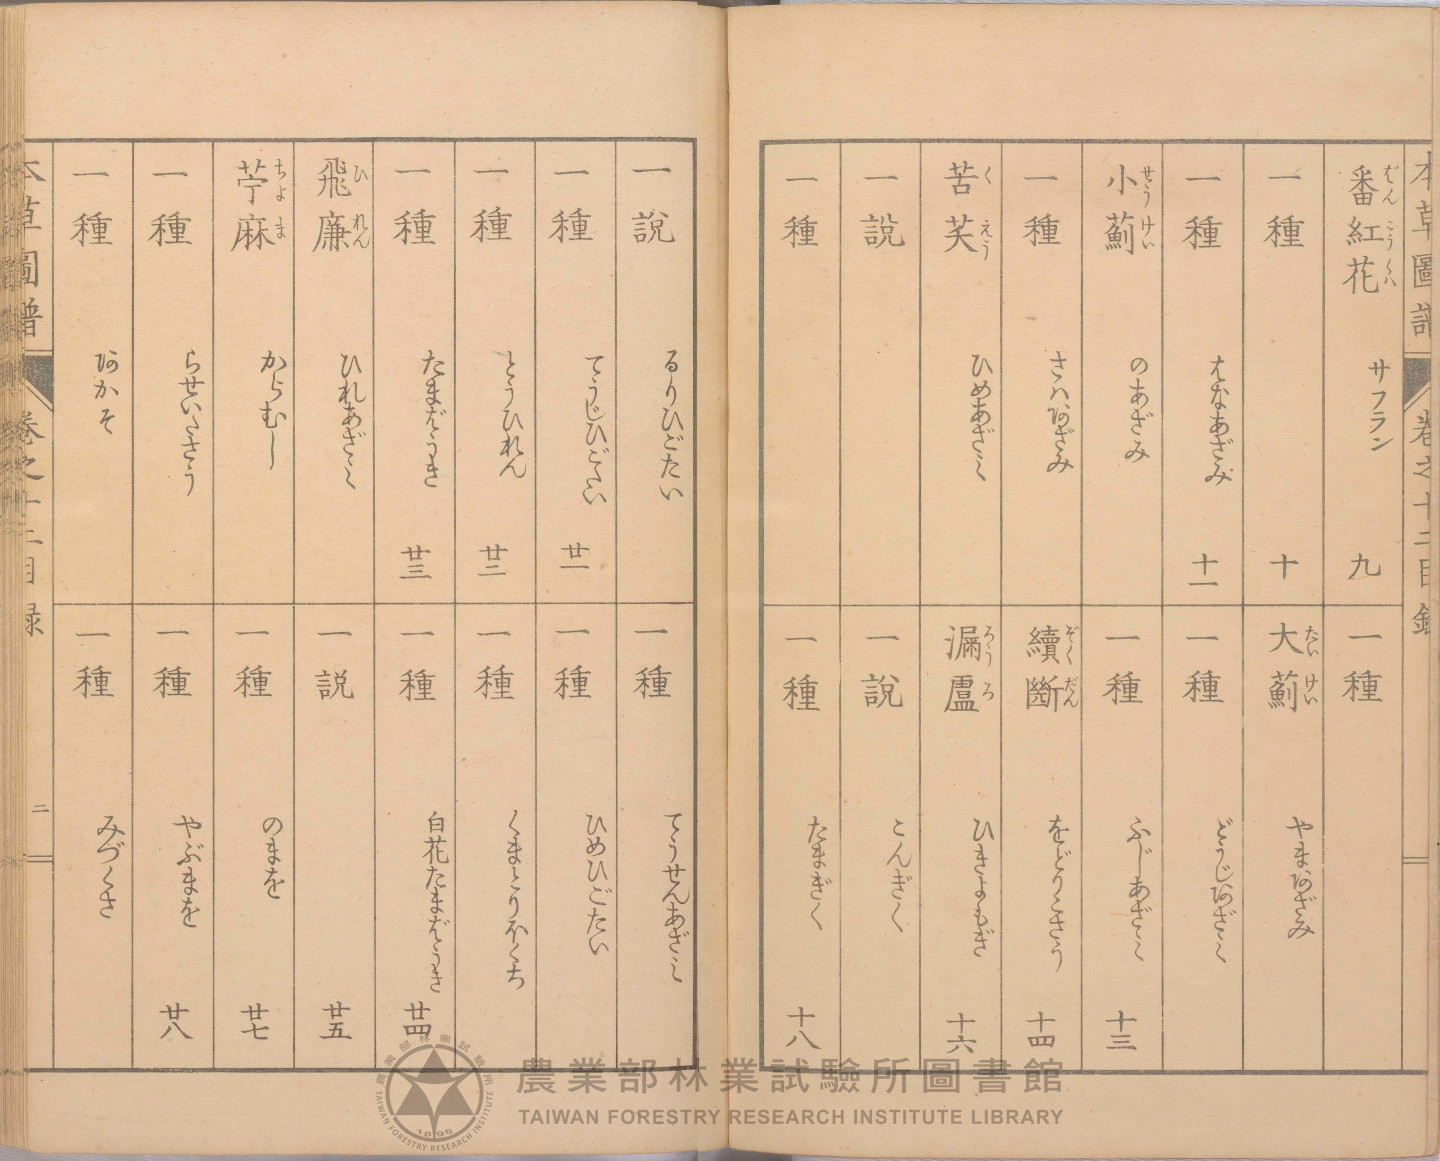 本草圖譜 卷之十二目録
番紅花 ばんこうくハ サフラン 九
一種
一種 十
大薊 たいけい やまあざみ
一種 はなあざみ 十一
一種 どうじあざミ
小薊 せうけい のあざみ
一種 ふじあざミ 十三
一種 さハあざみ
續斷 ぞくだん をどりこさう 十四
苦芺 くえう ひめあざミ
漏盧 ろうろ ひきよもぎ 十六
一說
一說 こんぎく
一種
一種 たまぎく 十八
一說 るりひごたい
一種 てうせんあざミ
一種 てうじひごたい 廿一
一種 ひめひごたい
一種 とうひれん 廿二
一種 くまとりぼくち
一種 たまばうき 廿三
一種 白花たまばうき 廿四
飛廉 ひれん ひれあざミ
一説 廿五
苧麻 ちよま からむし
一種 のまを 廿七
一種 らせいたさう
一種 やぶまを 廿八
一種 あかそ
一種 みづくさ
本草圖譜 卷之十二目録 二
農業部林業試驗所圖書館
TAIWAN FORESTRY RESEARCH INSTITUTE LIBRARY
農業部林業試驗所
TAIWAN FORESTRY RESEARCH INSTITUTE
1896